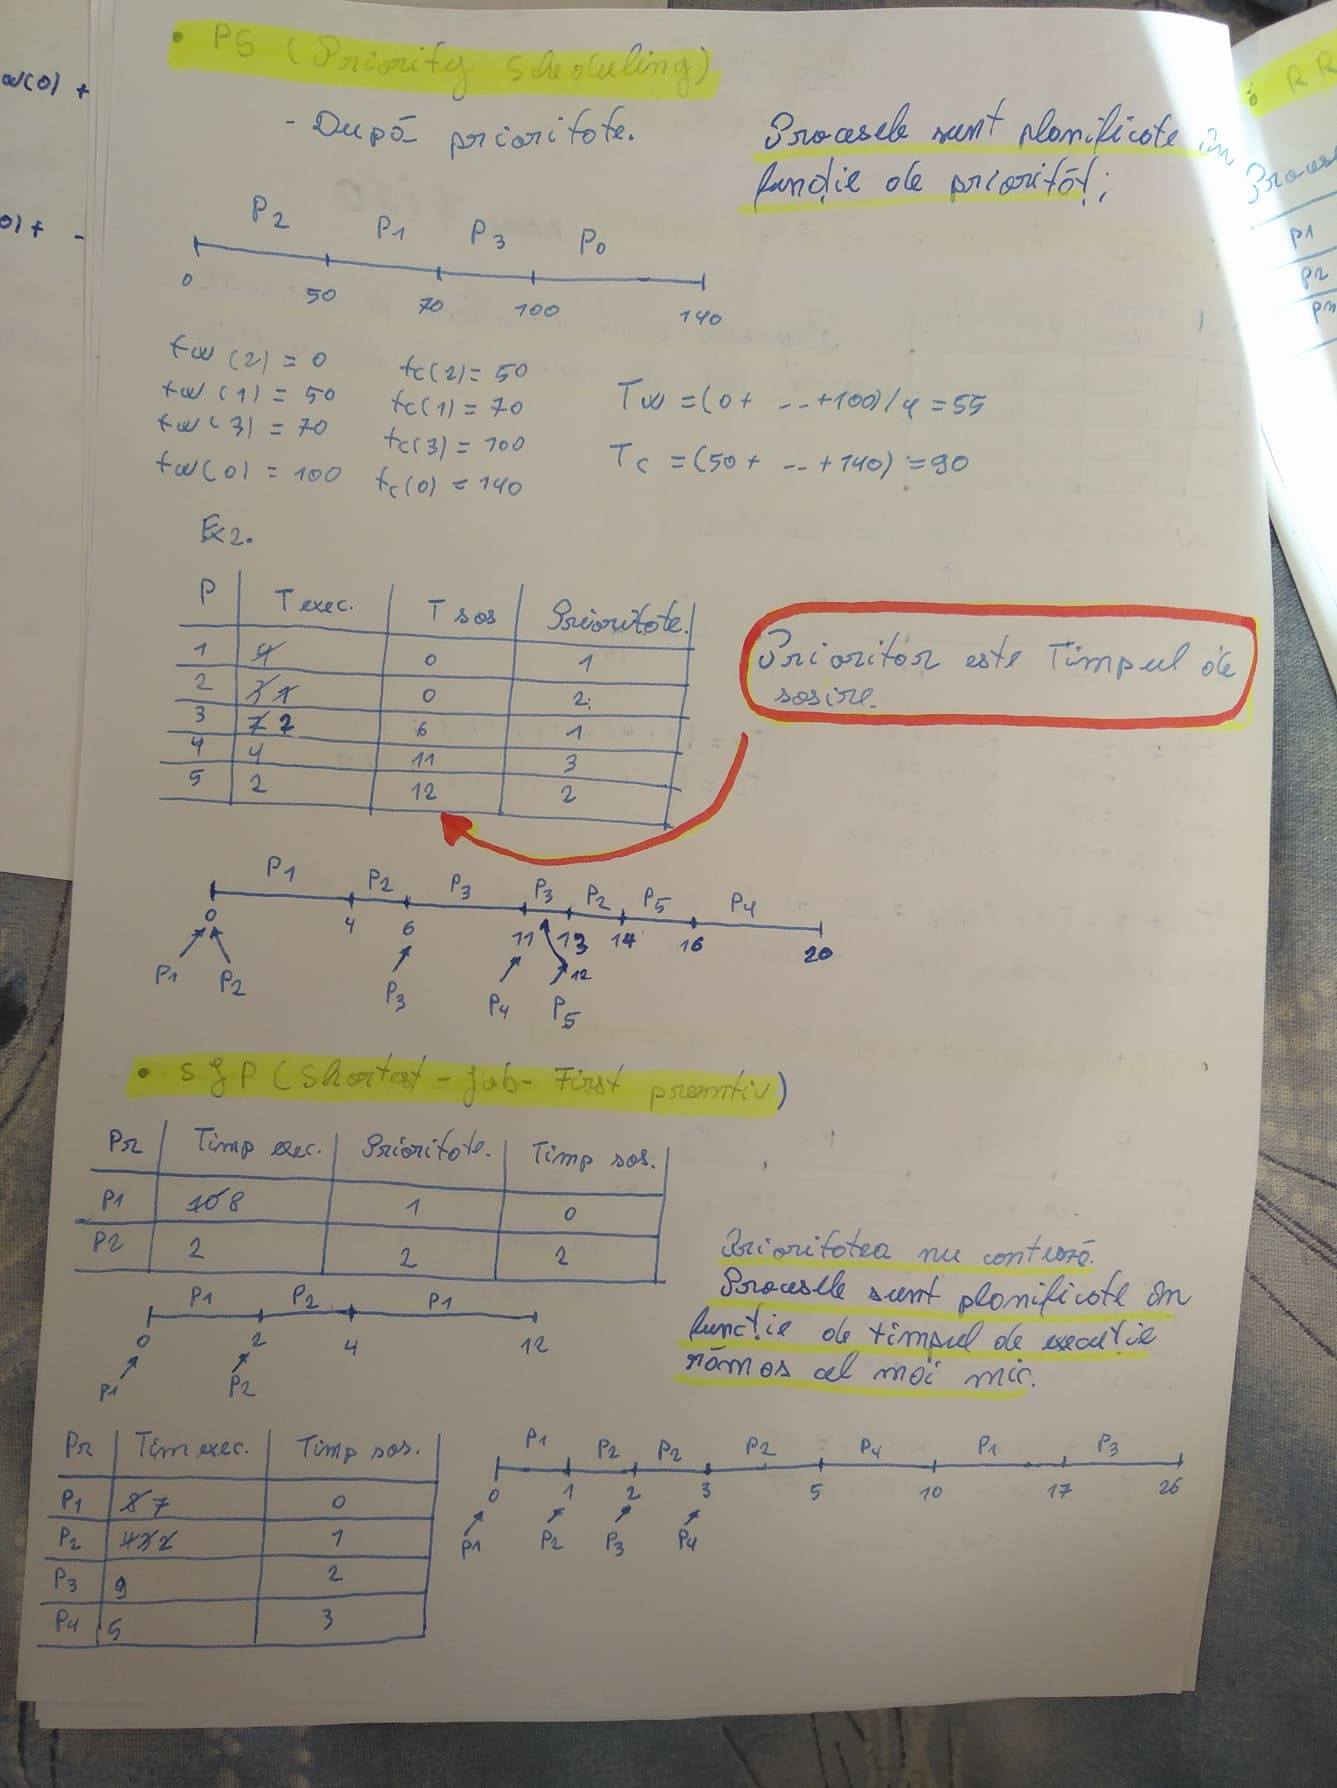 • PS (Priority Scheduling)
- După prioritate.
Procesele sunt planificate în
funcție de priorităț!;
P2 P1 P3 P0
0 50 70 100 140
tw(2) = 0 tc(2) = 50
tw(1) = 50 tc(1) = 70
tw(3) = 70 tc(3) = 100
tw(0) = 100 tc(0) = 140
Tw = (0+ -- +100)/4 = 55
Tc = (50+ -- +140) = 90
Ex2.
P T exec. T sos Prioritate.
1 4 0 1
2 3 1 0 2
3 7 2 6 1
4 4 11 3
5 2 12 2
Prioritar este Timpul de
sosire.
P1 P2 P3 P3 P2 P5 P4
0 4 6 11 13 14 16 20
12
P1 P2 P3 P4 P5
• SJP (Shortest-job-First premtiv)
Pr Timp exec. Prioritate. Timp sos.
P1 10 8 1 0
P2 2 2 2
P1 P2 P1
0 2 4 12
P1 P2
Prioritatea nu contează.
Procesele sunt planificate în
funcție de timpul de execuție
rămas cel mai mic.
Pr Tim exec. Timp sos.
P1 8 7 0
P2 4 3 2 1
P3 9 2
P4 5 3
P1 P2 P2 P2 P4 P1 P3
0 1 2 3 5 10 17 26
P1 P2 P3 P4
w(0) +
0)+ -
• RR
P1
P2